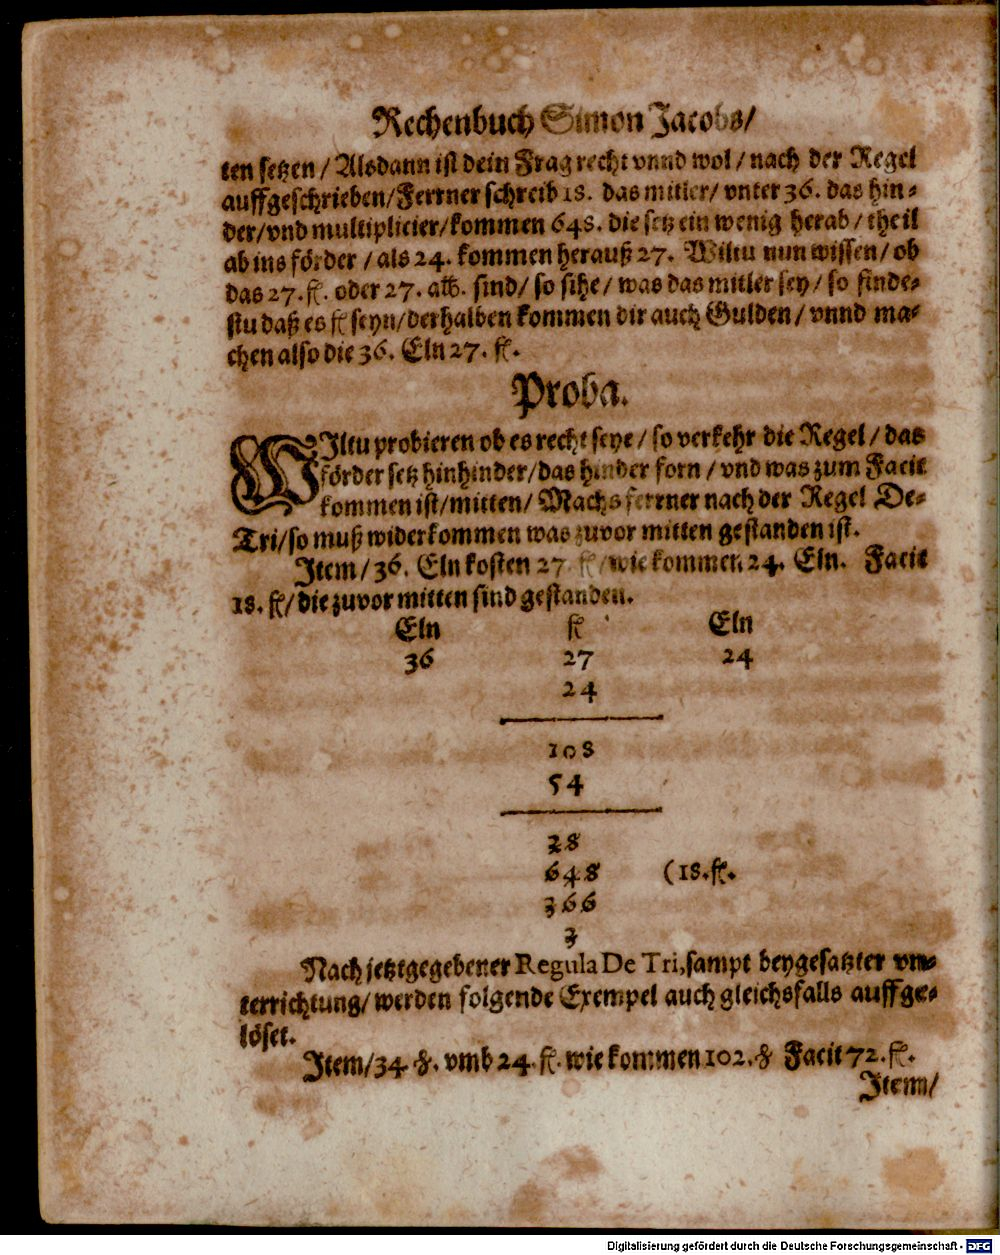 Rechenbuch Simon Jacobs/
ten setzen / Alsdann ist dein Frag recht vnnd wol / nach der Regel
auffgeschrieben/Ferrner schreib 18. das mitler/ vnter 36. das hin⸗
der/vnd multiplicier/kommen 648. die setz ein wenig herab / theil
ab ins förder / als 24. kommen herauß 27. Wiltu nun wissen / ob
das 27. fl. oder 27. alb. sind/ so sihe / was das mitler sey / so finde⸗
stu daß es fl seyn/derhalben kommen dir auch Gulden / vnnd ma⸗
chen also die 36. Eln 27. fl.
Proba.
WIltu probieren ob es recht seye / so verkehr die Regel / das
förder setz hinhinder/das hinder forn / vnd was zum Facit
kommen ist/mitten/ Machs ferrner nach der Regel De⸗
Tri/so muß widerkommen was zuvor mitten gestanden ist.
Item/ 36. Eln kosten 27. fl /wie kommen 24. Eln. Facit
18. fl/ die zuvor mitten sind gestanden.
Eln fl Eln
36 27 24
24
108
54
28
648 (18. fl.
366
3
Nach jetztgegebener Regula De Tri, sampt beygesatzter vn⸗
terrichtung/ werden folgende Exempel auch gleichsfalls auffge⸗
löset.
Item/34. ℔. vmb 24. fl. wie kommen 102. ℔ Facit 72. fl.
Item/
Digitalisierung gefördert durch die Deutsche Forschungsgemeinschaft - DFG